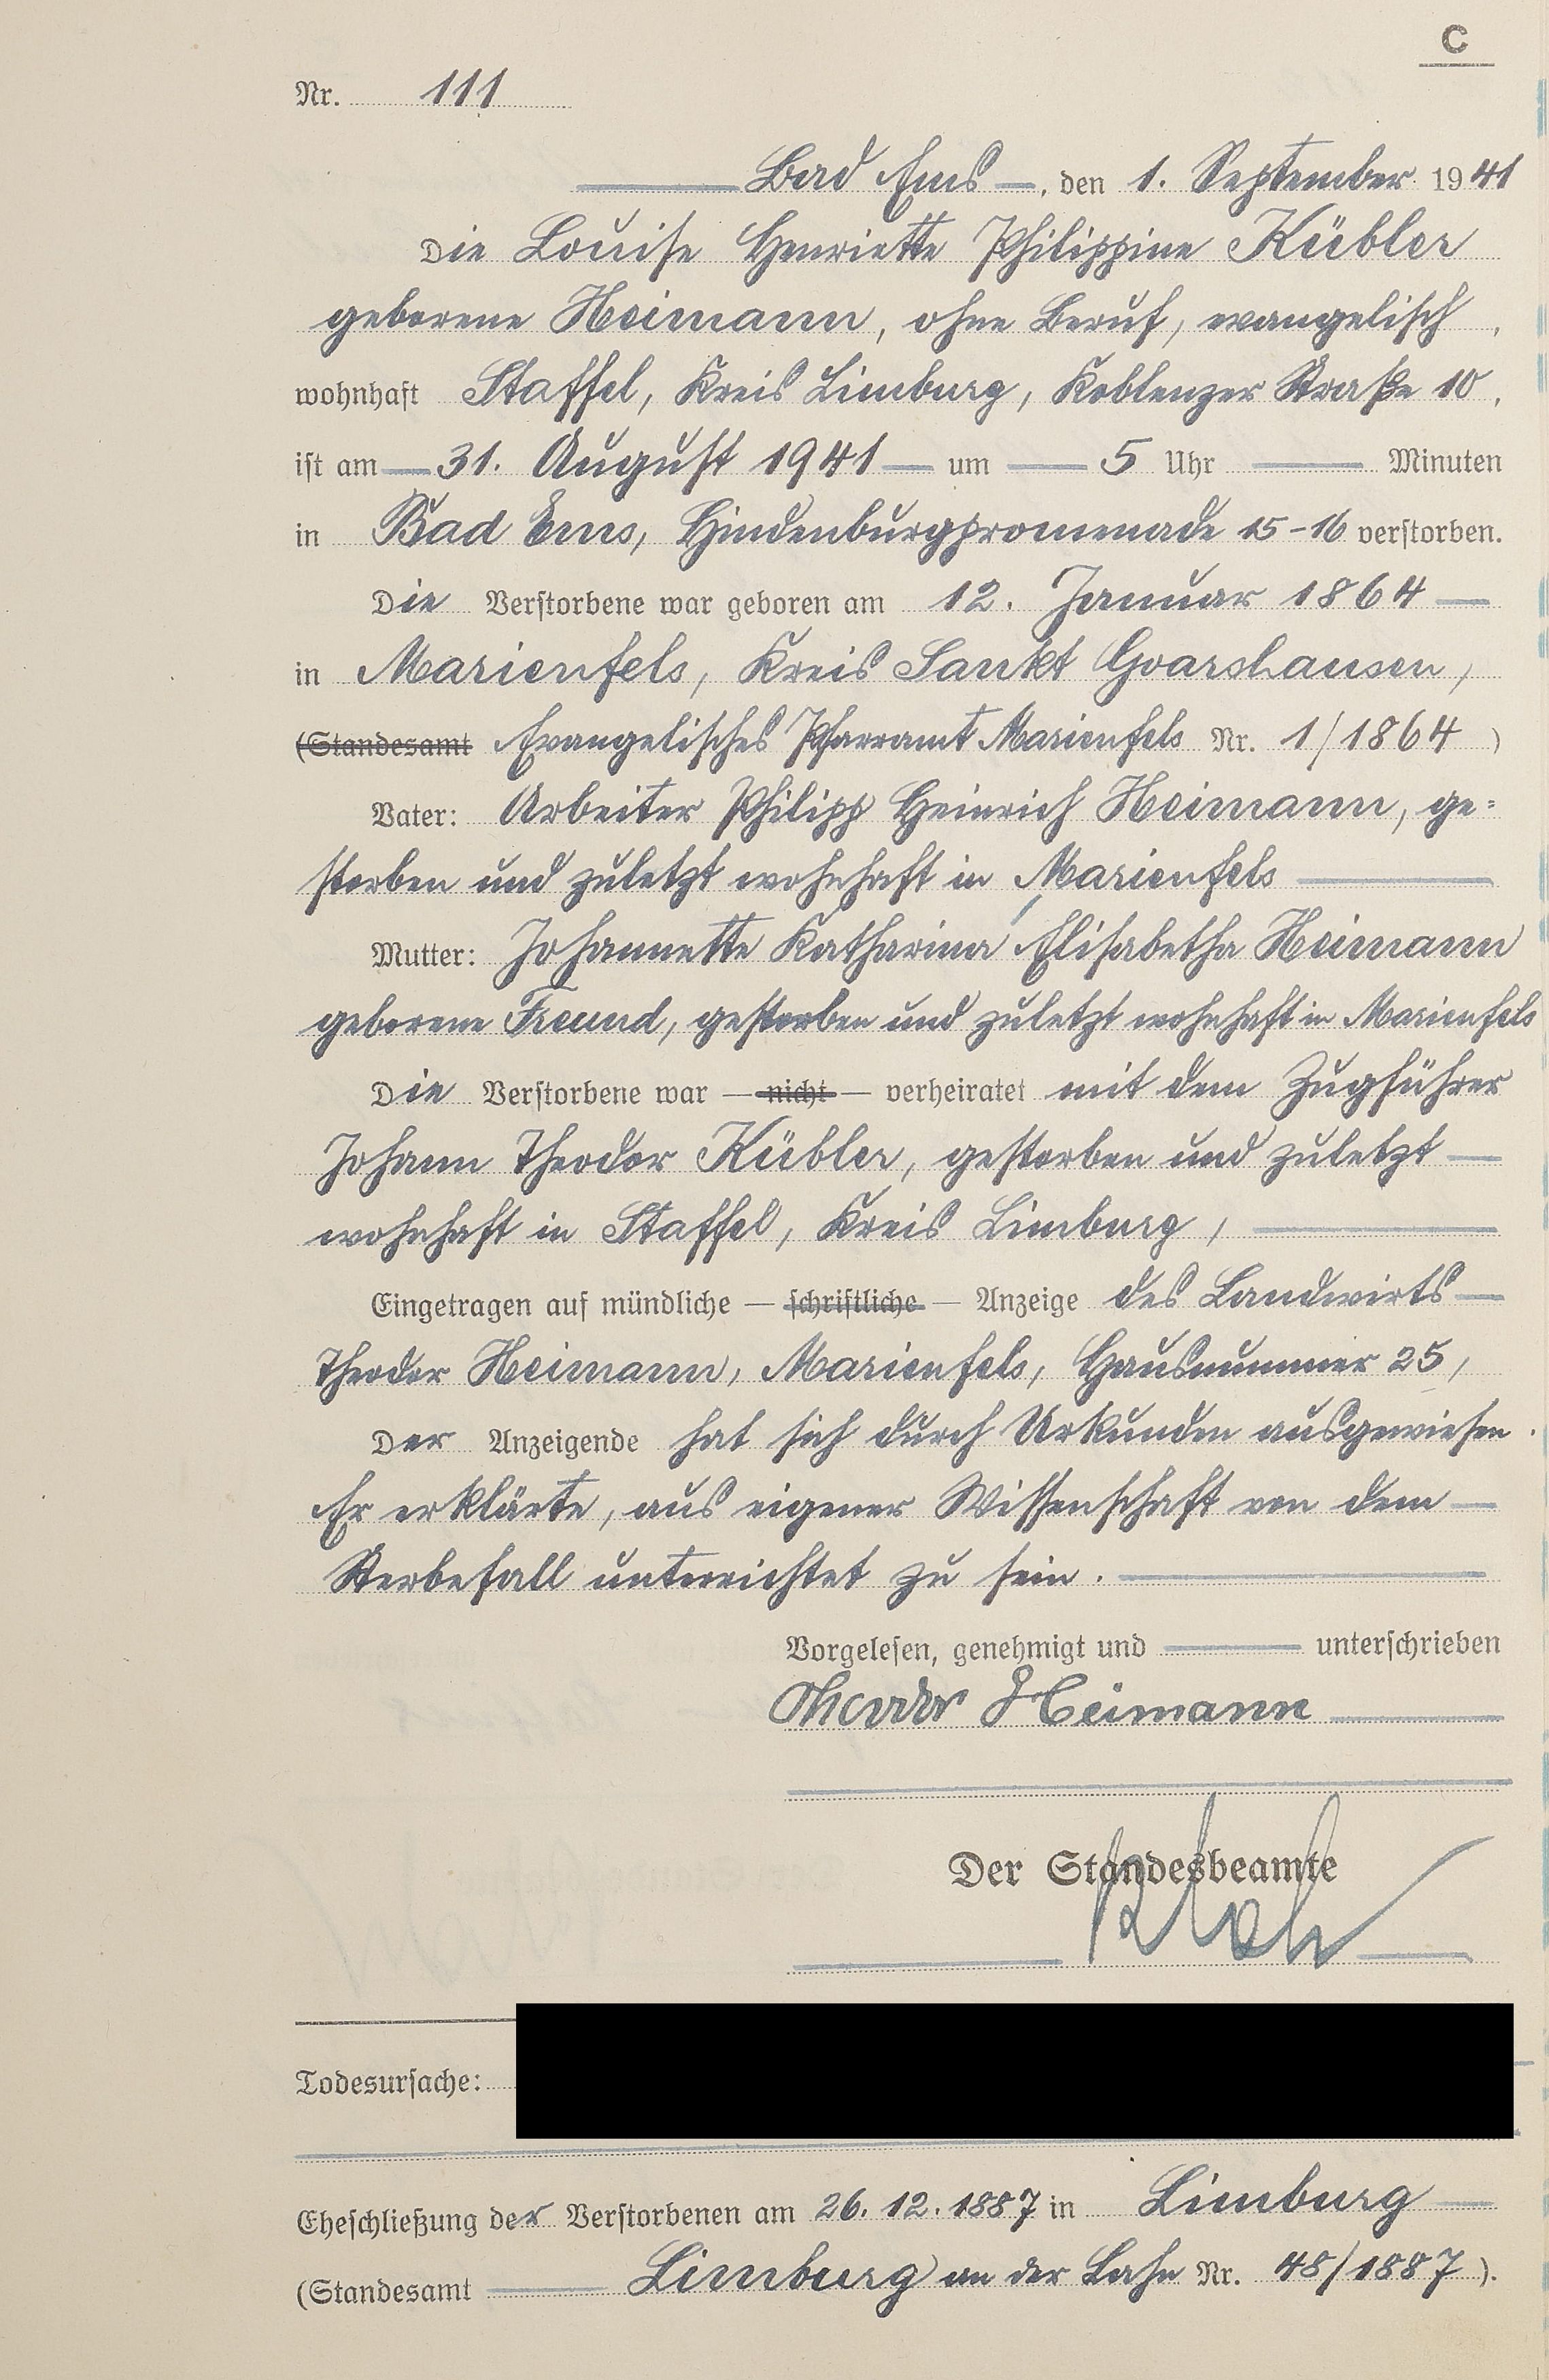 C
Nr. 111
Bad Ems, den 1. September 1941
Die Louise Henriette Philippine Kübler
geborene Heimann, ohne Beruf, evangelisch,
wohnhaft Staffel, Kreis Limburg, Koblenzer Straße 10,
ist am 31. August 1941 um 5 Uhr Minuten
in Bad Ems, Hindenburgpromenade 15-16 verstorben.
Die Verstorbene war geboren am 12. Januar 1864
in Marienfels, Kreis Sankt Goarshausen,
(Standesamt Evangelisches Pfarramt Marienfels Nr. 1/1864)
Vater: Arbeiter Philipp Heinrich Heimann, ge=
storben und zuletzt wohnhaft in Marienfels
Mutter: Johannette Katharina Elisabetha Heimann
geborene Freund, gestorben und zuletzt wohnhaft in Marienfels
Die Verstorbene war — nicht — verheiratet mit dem Zugführer
Johann Theodor Kübler, gestorben und zuletzt
wohnhaft in Staffel, Kreis Limburg,
Eingetragen auf mündliche — schriftliche — Anzeige des Landwirts
Theodor Heimann, Marienfels, Hausnummer 25,
Der Anzeigende hat sich durch Urkunden ausgewiesen.
Er erklärte, aus eigener Wissenschaft von dem
Sterbefall unterrichtet zu sein.
Vorgelesen, genehmigt und unterschrieben
Theodor Heimann
Der Standesbeamte
Todesursache:
Eheschließung der Verstorbenen am 26.12.1887 in Limburg
(Standesamt Limburg an der Lahn Nr. 48/1887).